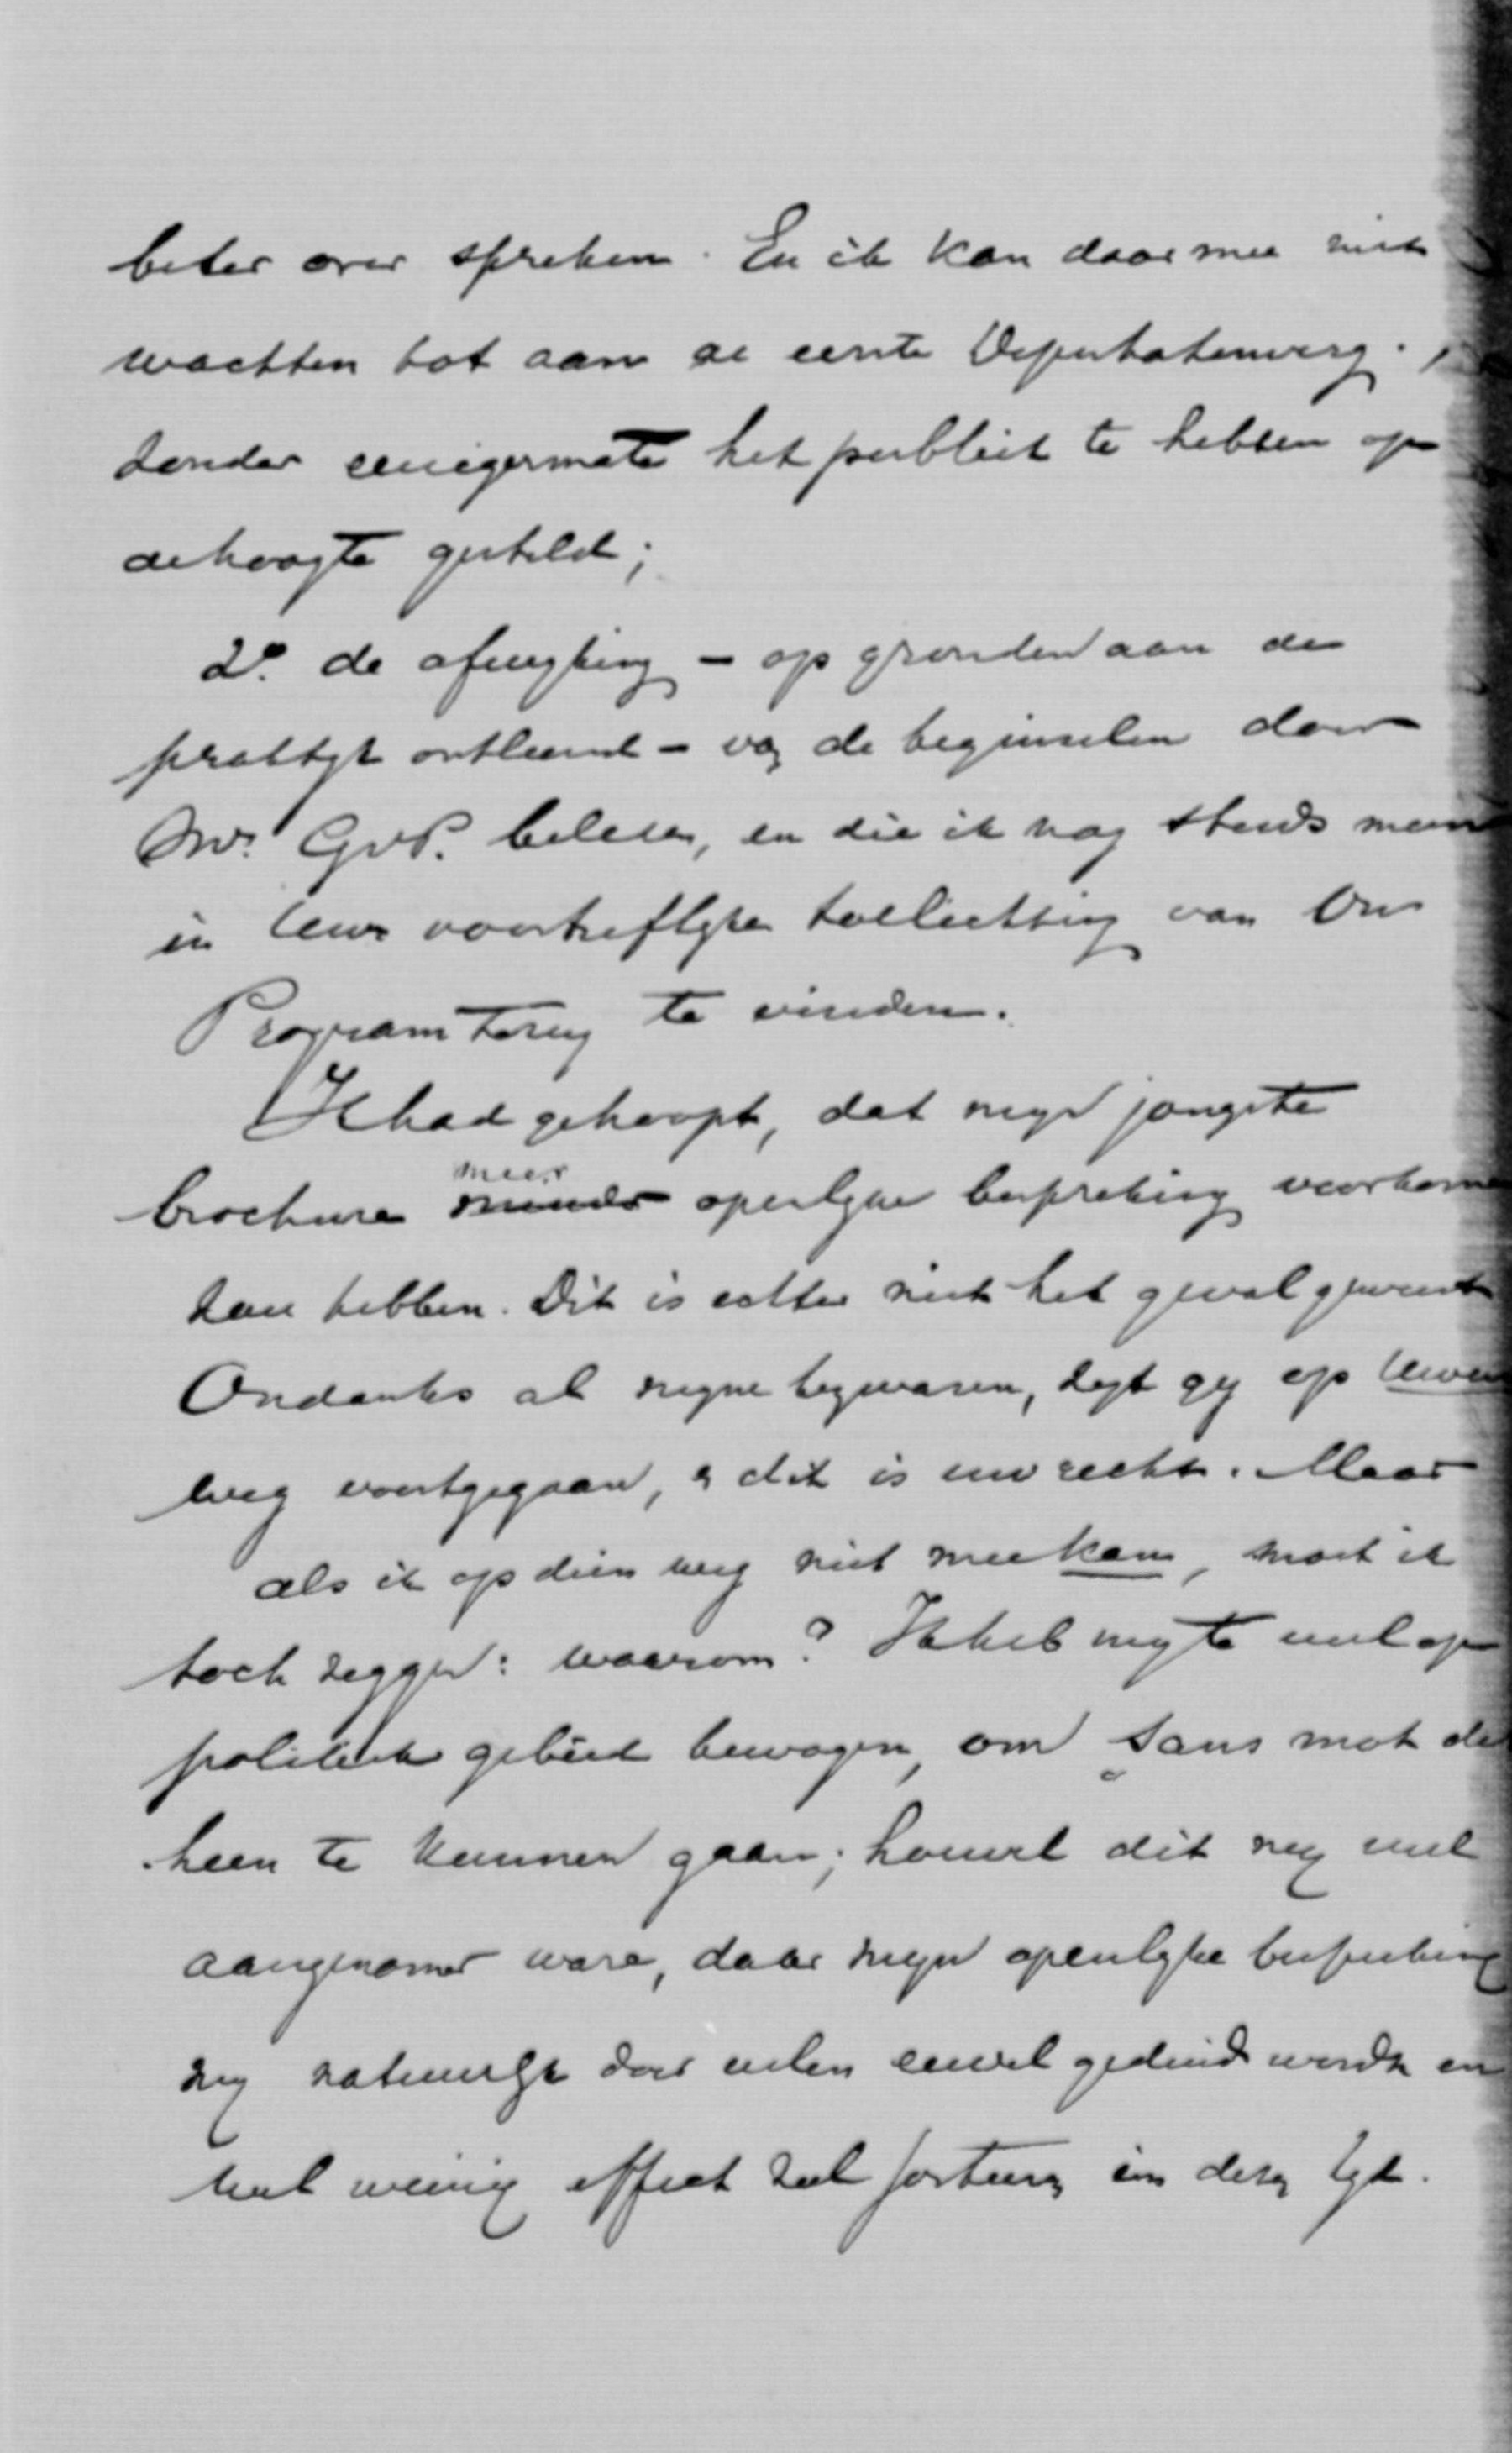 beter over spreken. En ik kan daarmee niet
wachten tot aan de eerste Deputatenverg.,
zonder eenigermate het publiek te hebben op
de hoogte gesteld;
2º. de afwyking – op gronden aan de
praktyk ontleend – v/d de beginselen door
Mr. GvP. beleden, en die ik nog steeds meen
in Uwe voortreflyke toelichting van Ons
Program terug te vinden.
Ik had gehoopt, dat myn jongste
brochure meer openlyke bespreking voorkomen
zou hebben. Dit is echter niet het geval geweest
Ondanks al myne bezwaren, zyt gy op Uwen
weg voortgegaan, & dit is uw recht. Maar
als ik op dien weg niet meekan, moet ik
toch zeggen: waarom? Ik heb my te veel op
politiek gebied bewogen, om sans mot dire
heen te kunnen gaan; hoewel dit my veel
aangenamer ware, daar myn openlyke bespreking
my natuurlyk door velen euvel geduid wordt en
heel weinig effect zal sorteeren in dezen tyd.